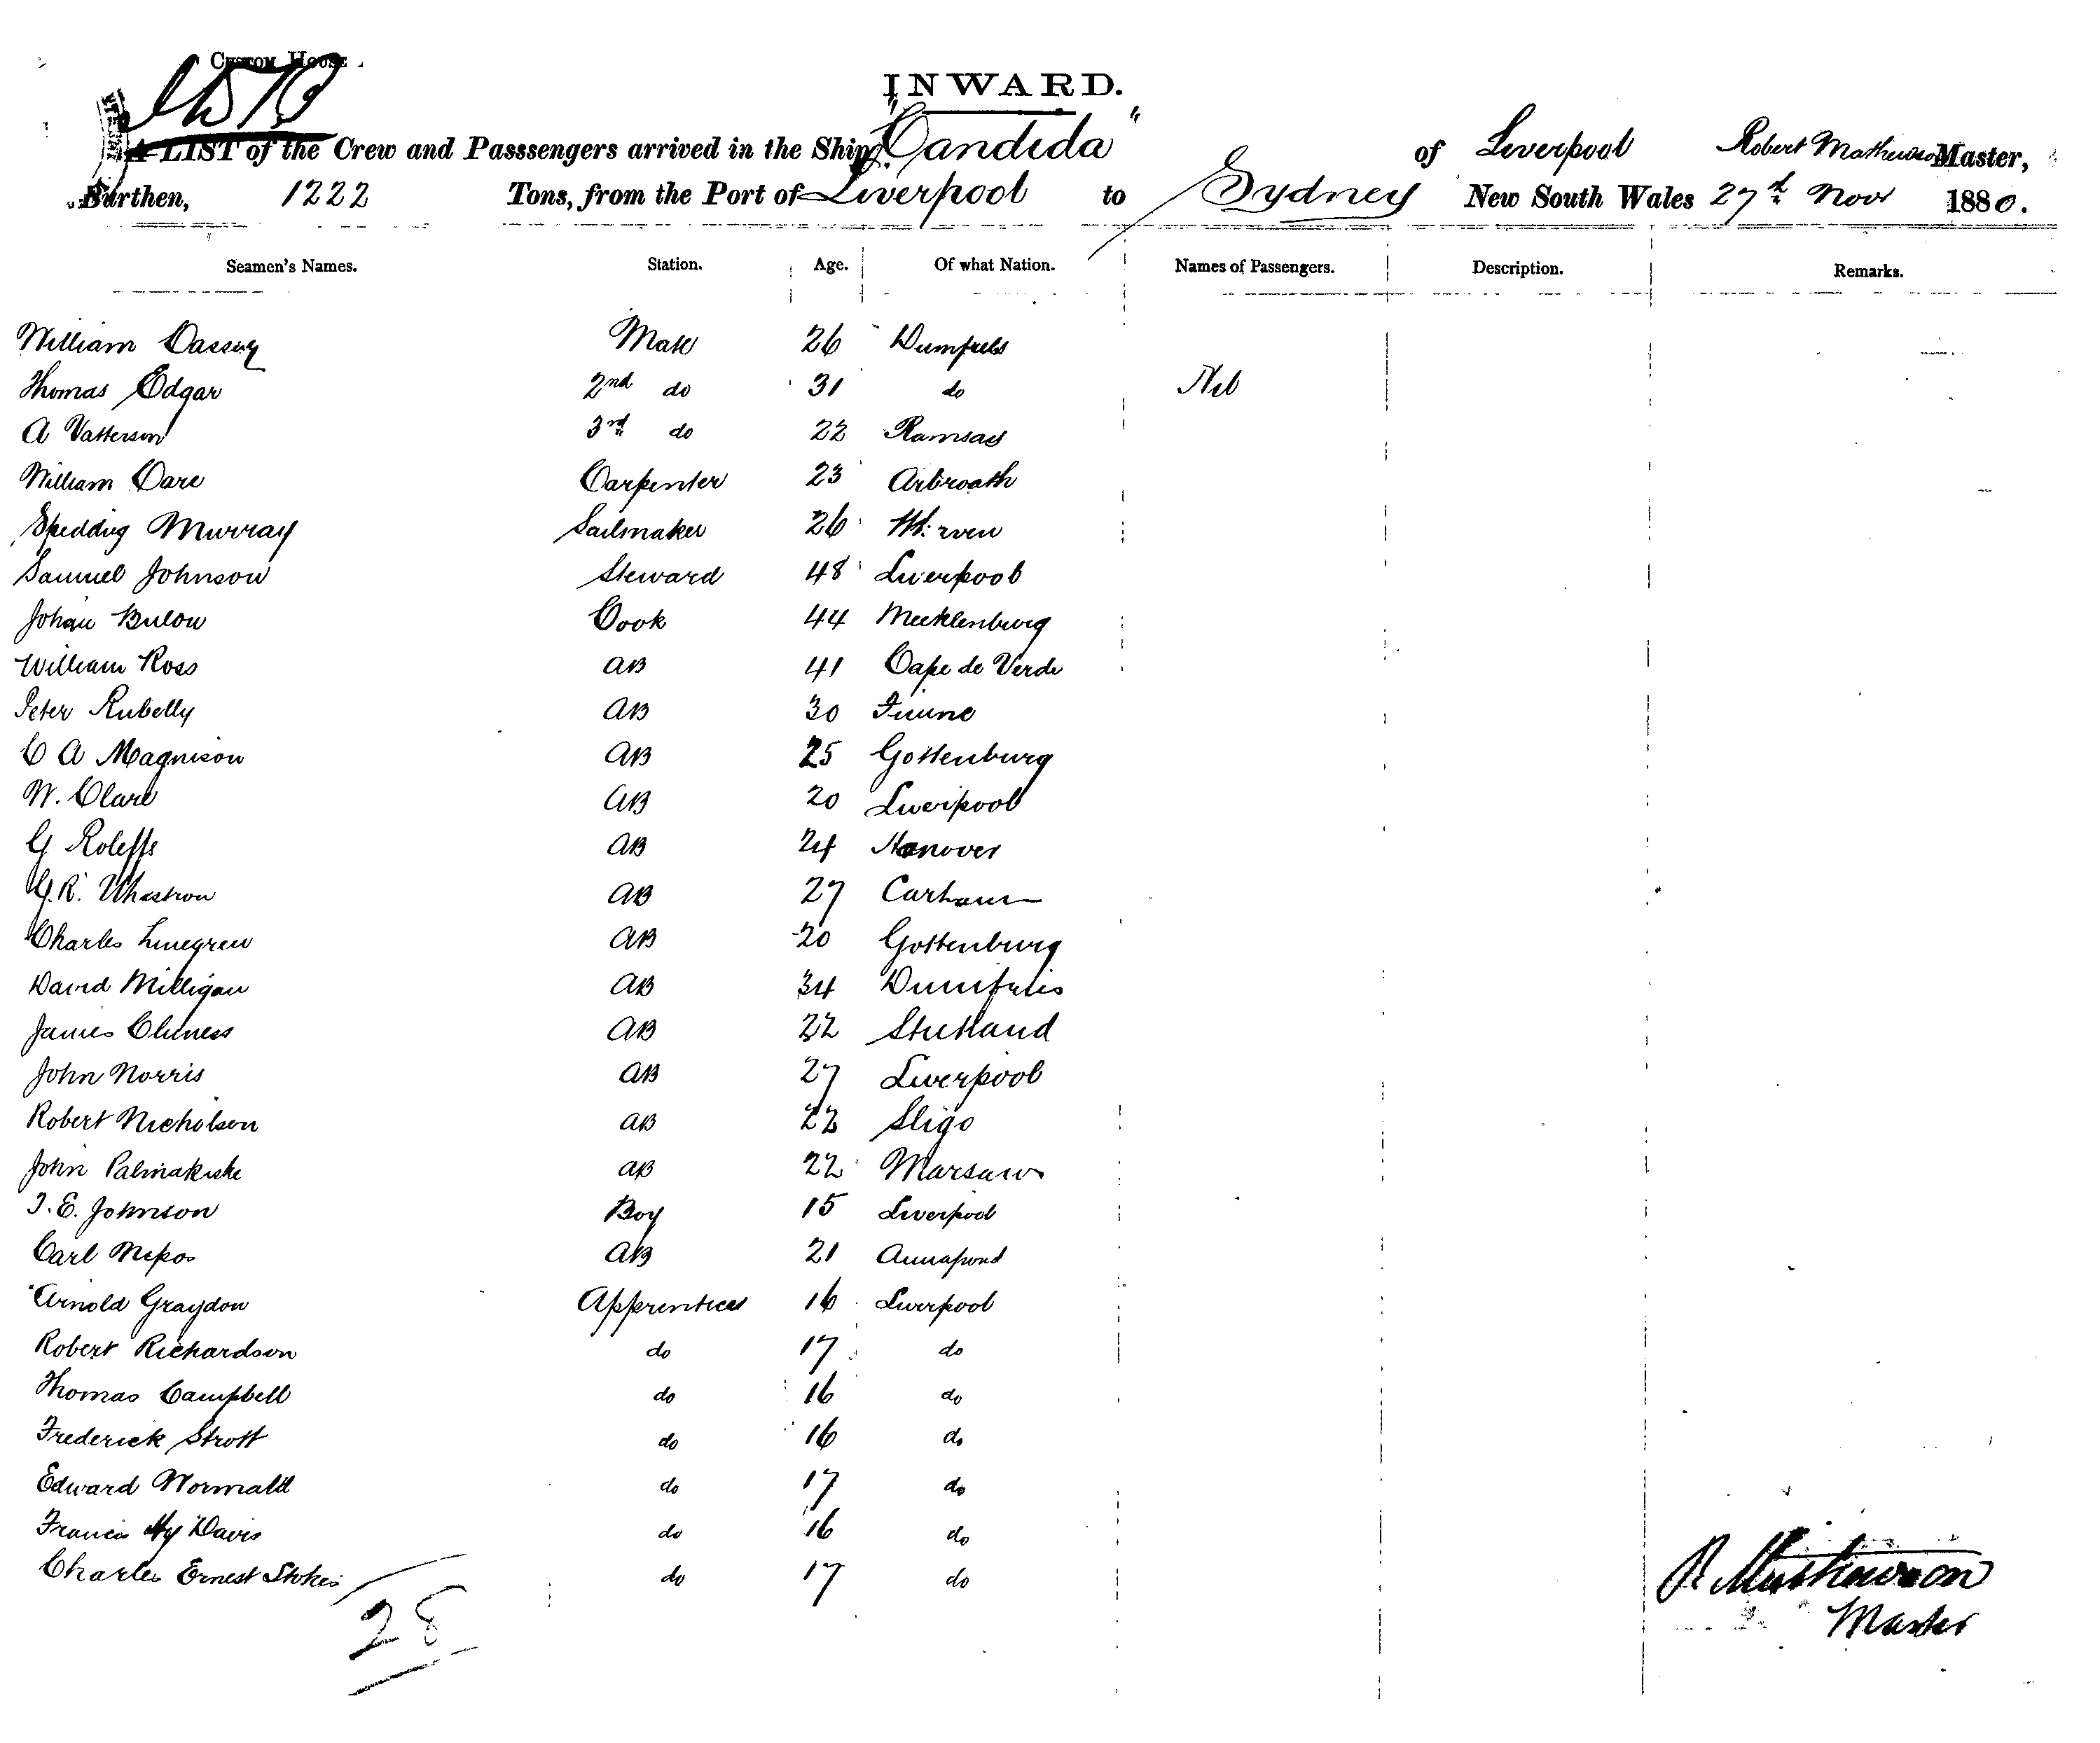 Custom House
INWARD.
A LIST of the Crew and Passsengers arrived in the Ship "Candida" of Liverpool Robert Mathewson Master,
Burthen, 1222 Tons, from the Port of Liverpool to Sydney New South Wales 27th Novr 1880.
Seamen's Names. Station. Age. Of what Nation. Names of Passengers. Description. Remarks.
William Mate 26 Dumfries
Thomas Edgar 2nd do 31 do Nil
A Patterson 3rd do 22 Ramsay
William Dare Carpenter 23 Arbroath
Spedding Murray Sailmaker 26
Samuel Johnson Steward 48 Liverpool
Johan Bulow Cook 44 Mecklenburg
William Ross AB 41 Cape de Verde
Peter Rubelly AB 30 Fiume
C A Magnison AB 25 Gottenburg
W. Clare AB 20 Liverpool
G Roleffs AB 24 Hanover
G. R. AB 27
Charles Linegren AB 20 Gottenburg
David Milligan AB 34 Dumfries
James Cluness AB 22 Shetland
John Norris AB 27 Liverpool
Robert Nicholson AB 22 Sligo
John AB 22 Warsaw
T. E. Johnson Boy 15 Liverpool
Carl AB 21
Arnold Graydon Apprentice 16 Liverpool
Robert Richardson do 17 do
Thomas Campbell do 16 do
Frederick Strott do 16 do
Edward Wormald do 17 do
Francis Hy Davis do 16 do
Charles Ernest Stokes do 17 do
28
R Mathewson
Master